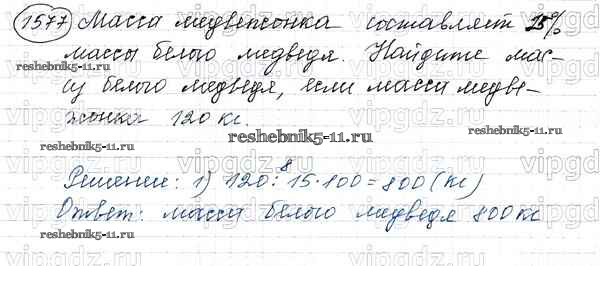 1577 Масса медвежонка составляет 15%
массы белого медведя. Найдите мас-
reshebnik5-11.ru
су белого медведя, если масса медве-
жонка 120 кг.
reshebnik5-11.ru
reshebnik5-11.ru
8
Решение: 1) 120 : 15 · 100 = 800 (кг)
Ответ: масса белого медведя 800 кг
reshebnik5-11.ru
reshebnik5-11.ru